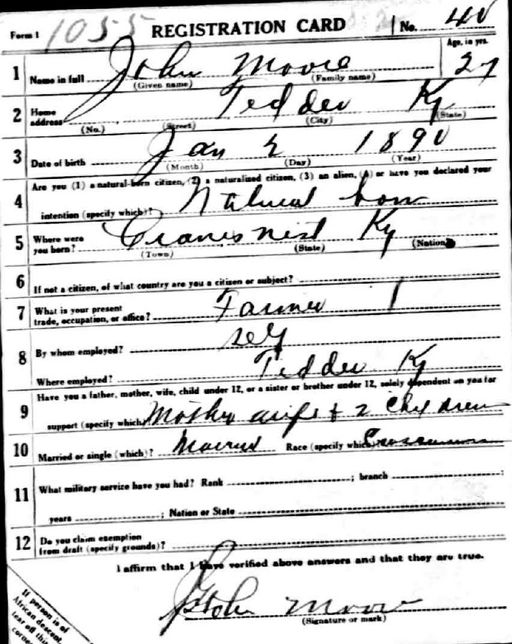 Form 1 1055 REGISTRATION CARD No. 40
1 Name in full John Moore Age, in yrs. 27
(Given name) (Family name)
2 Home address Tedder Ky
(No.) (Street) (City) (State)
3 Date of birth Jan 2 1890
(Month) (Day) (Year)
4 Are you (1) a natural-born citizen, (2) a naturalized citizen, (3) an alien, (4) or have you declared your
intention (specify which)? Natural born
5 Where were you born? Cranes nest Ky
(Town) (State) (Nation)
6 If not a citizen, of what country are you a citizen or subject?
7 What is your present trade, occupation, or office? Farmer 1
8 By whom employed? self
Where employed? Tedder Ky
9 Have you a father, mother, wife, child under 12, or a sister or brother under 12, solely dependent on you for
support (specify which)? Mother wife & 2 Children
10 Married or single (which)? Married Race (specify which)? Caucasian
11 What military service have you had? Rank ; branch ;
years ; Nation or State
12 Do you claim exemption from draft (specify grounds)?
I affirm that I have verified above answers and that they are true.
John Moore
(Signature or mark)
If person is of
African descent,
tear off this
corner